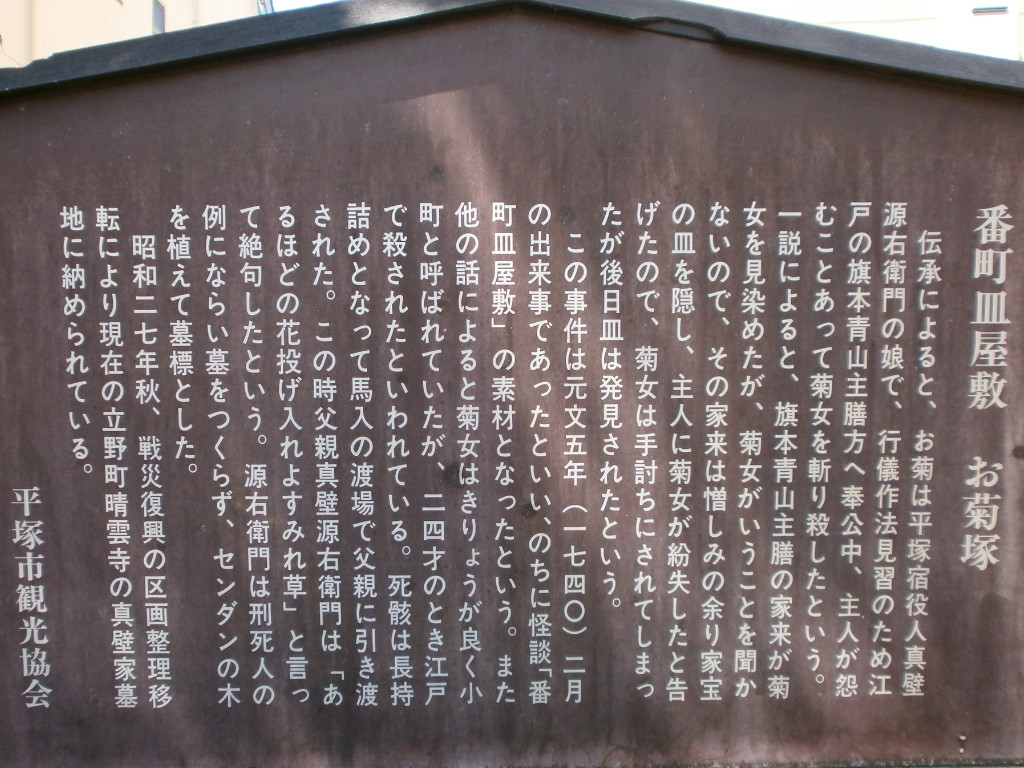 番町皿屋敷 お菊塚
伝承によると、お菊は平塚宿役人真壁
源右衛門の娘で、行儀作法見習のため江
戸の旗本青山主膳方へ奉公中、主人が怨
むことあって菊女を斬り殺したという。
一説によると、旗本青山主膳の家来が菊
女を見染めたが、菊女がいうことを聞か
ないので、その家来は憎しみの余り家宝
の皿を隠し、主人に菊女が紛失したと告
げたので、菊女は手討ちにされてしまっ
たが後日皿は発見されたという。
この事件は元文五年（一七四〇）二月
の出来事であったといい、のちに怪談「番
町皿屋敷」の素材となったという。また
他の話によると菊女はきりょうが良く小
町と呼ばれていたが、二四才のとき江戸
で殺されたといわれている。死骸は長持
詰めとなって馬入の渡場で父親に引き渡
された。この時父親真壁源右衛門は「あ
るほどの花投げ入れよすみれ草」と言っ
て絶句したという。源右衛門は刑死人の
例にならい墓をつくらず、センダンの木
を植えて墓標とした。
昭和二七年秋、戦災復興の区画整理移
転により現在の立野町晴雲寺の真壁家墓
地に納められている。
平塚市観光協会